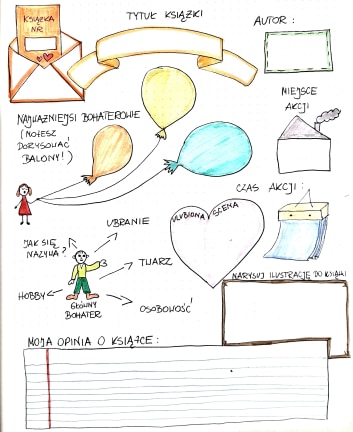 KSIĄŻKA
NR:
TYTUŁ KSIĄŻKI
AUTOR :
MIEJSCE
AKCJI
NAJWAŻNIEJSI BOHATEROWIE
(MOŻESZ
DORYSOWAĆ
BALONY!)
CZAS AKCJI :
ULUBIONA SCENA
UBRANIE
JAK SIĘ
NAZYWA?
TWARZ
HOBBY
GŁÓWNY
BOHATER
OSOBOWOŚĆ
NARYSUJ ILUSTRACJĘ DO KSIĄŻKI
MOJA OPINIA O KSIĄŻCE :